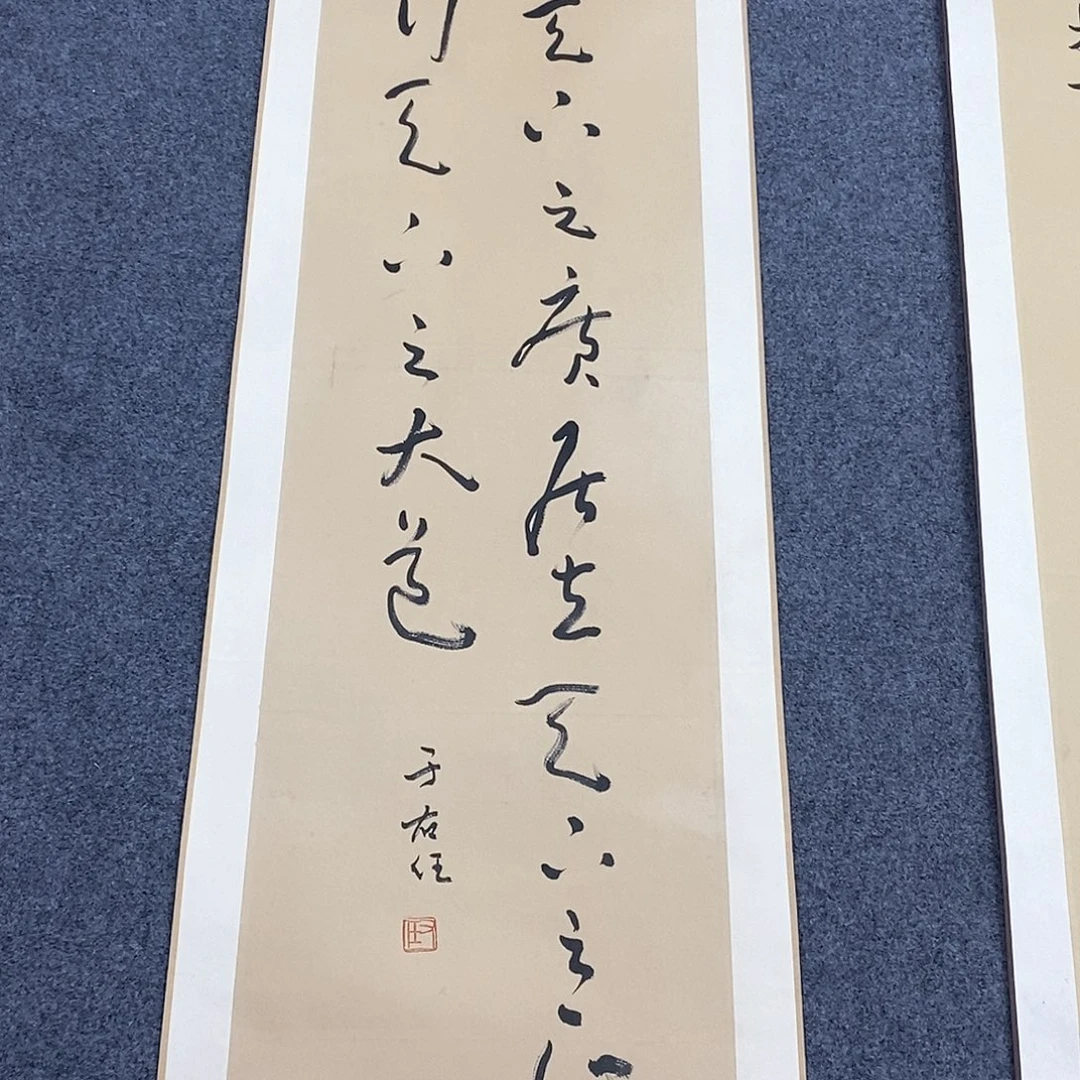 天下之廣居立天下之
行天下之大道
于右任
右任